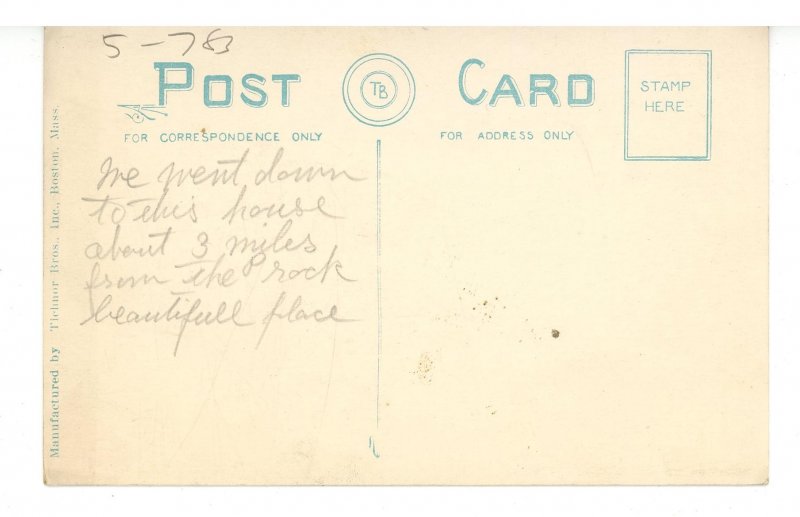 5-783
POST TB CARD
STAMP
HERE
FOR CORRESPONDENCE ONLY
FOR ADDRESS ONLY
We went down
to this house
about 3 miles
from the rock
beautifull place
Manufactured by Tichnor Bros., Inc., Boston, Mass.